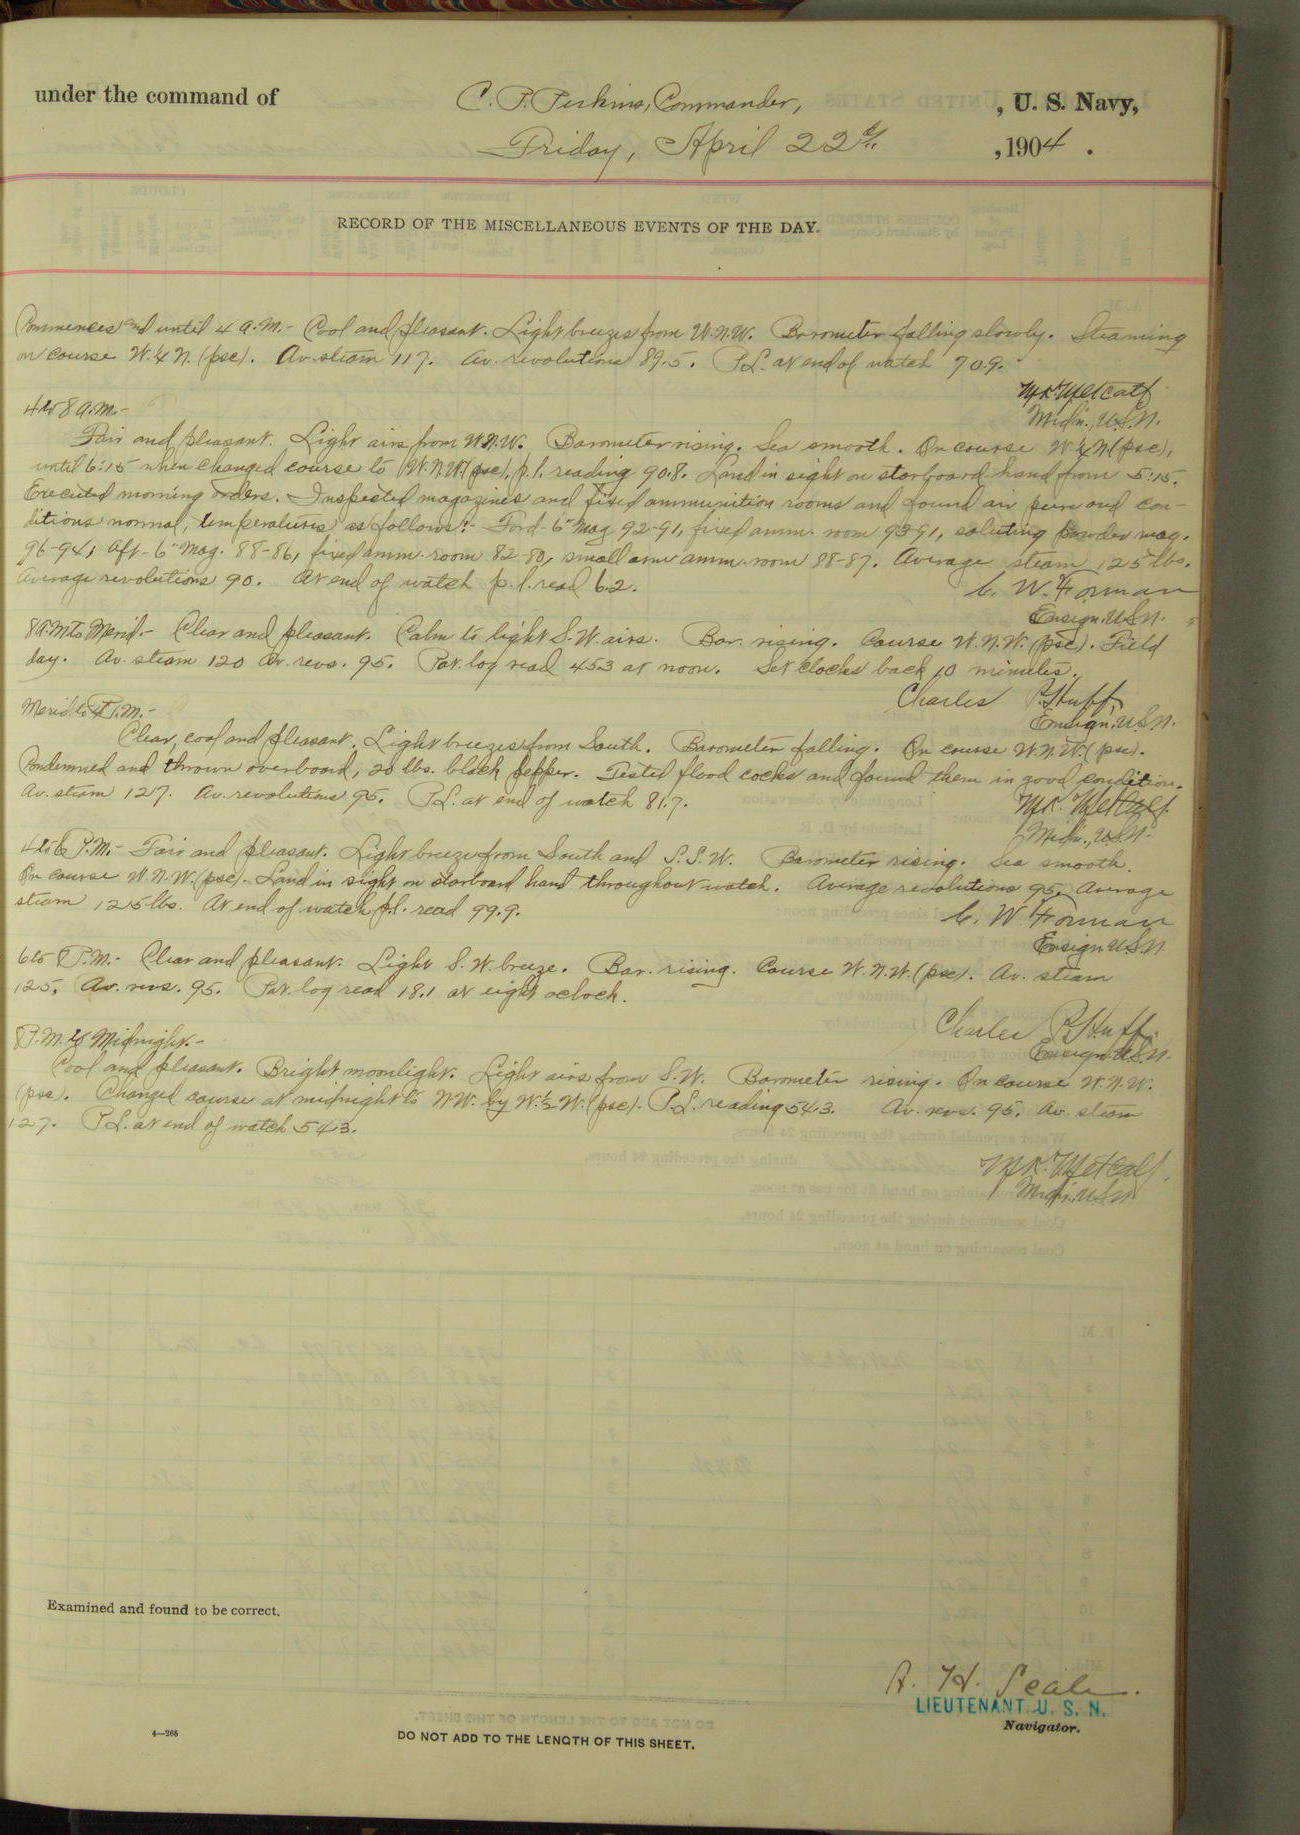 under the command of C. P. Perkins, Commander, , U. S. Navy,
Friday, April 22d. , 1904 .
RECORD OF THE MISCELLANEOUS EVENTS OF THE DAY.
Commences and until 4 A.M.- Cool and pleasant. Light breezes from W.N.W. Barometer falling slowly. Steaming
on course W.¼N. (psc). Av. steam 117. Av. revolutions 89.5. P.L. at end of watch 70.9.
M.K. Metcalf
Midn., U.S.N.
4 to 8 A.M.-
Fair and pleasant. Light airs from W.N.W. Barometer rising. Sea smooth. On course W.¼N (psc),
until 6:15 when changed course to W.N.W. (psc), p.l. reading 90.8. Land in sight on starboard hand from 5:15.
Executed morning orders. Inspected magazines and fixed ammunition rooms and found air pure and con-
ditions normal, temperatures as follows:- Ford-6" Mag 92-91, fixed amm. room 93-91, saluting powder mag.
96-94; Aft-6" Mag. 88-86, fixed amm. room 82-80, small arm amm. room 88-87. Average steam 125 lbs.
Average revolutions 90. At end of watch p.l. read 6.2.
C. W. Forman
Ensign. U.S.N.
8 A.M. to Merid.- Clear and pleasant. Calm to light S.W. airs. Bar. rising. Course W.N.W. (psc). Field
day. Av. steam 120 Av. revs. 95. Pat. log read 45.3 at noon. Set clocks back 10 minutes.
Charles P. Huff,
Ensign, U.S.N.
Merid. to 4 P.M.-
Clear, cool and pleasant. Light breezes from South. Barometer falling. On course W.N.W. (psc).
Condemned and thrown overboard, 20 lbs. black pepper. Tested flood cocks and found them in good condition.
Av. steam 127. Av. revolutions 95. P.L. at end of watch 81.7.
M.K. Metcalf
Midn., U.S.N.
4 to 6 P.M.- Fair and pleasant. Light breeze from South and S.S.W. Barometer rising. Sea smooth.
On course W.N.W. (psc). Land in sight on starboard hand throughout watch. Average revolutions 95, Average
steam 125 lbs. At end of watch p.l. read 99.9.
C. W. Forman
Ensign U.S.N.
6 to 8 P.M.- Clear and pleasant. Light S.W. breeze. Bar. rising. Course W.N.W. (psc). Av. steam
125. Av. revs. 95. Pat. log read 18.1 at eight oclock.
Charles P. Huff.
Ensign U.S.N.
8 P.M. to Midnight.-
Cool and pleasant. Bright moonlight. Light airs from S.W. Barometer rising. On course W.N.W.
(psc). Changed course at midnight to N.W. by W.½W. (psc). P.L. reading 54.3. Av. revs. 95. Av. steam
127. P.L. at end of watch 54.3.
M.K. Metcalf,
Midn. U.S.N.
Examined and found to be correct.
A. H. Scales.
LIEUTENANT U. S. N.
Navigator.
4—265
DO NOT ADD TO THE LENGTH OF THIS SHEET.